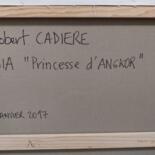 obert CADIERE
IA "Princesse d'ANGKOR"
ANVIER 2017